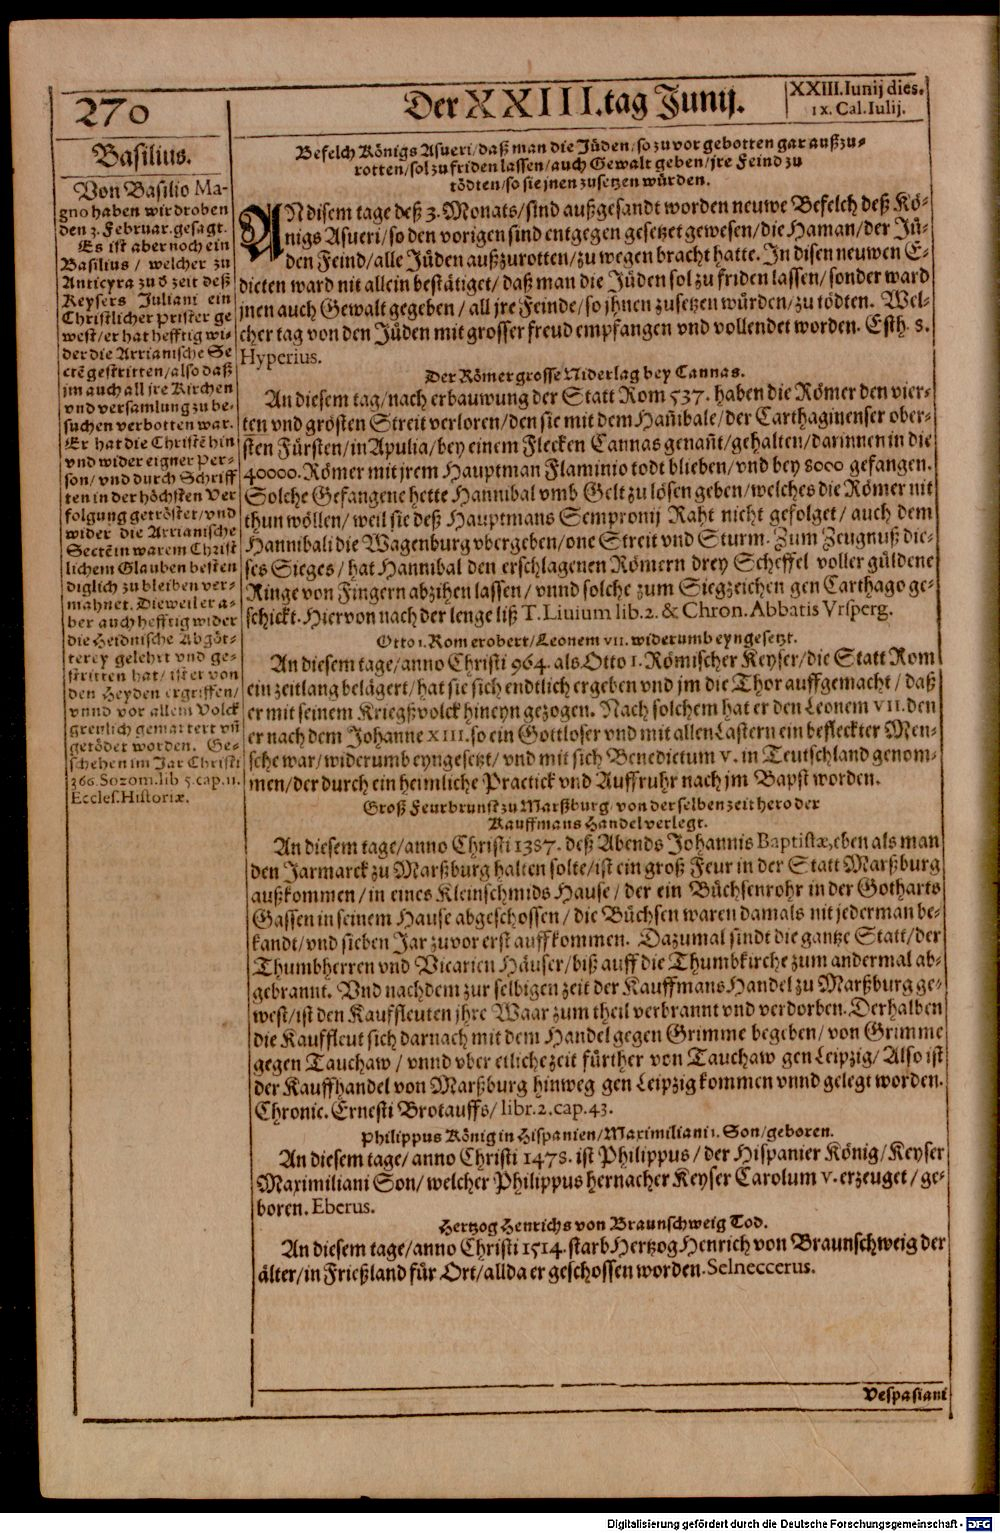 270
Der XXIII. tag Junij.
XXIII. Iunij dies.
IX. Cal. Iulij.
Basilius.
Von Basilio Ma-
gno haben wir droben
den 2. Februar. gesagt.
Es ist aber noch ein
Basilius / welcher zu
Anticyra zu d zeit deß
Keysers Juliani ein
Christlicher prister ge
west / er hat hefftig wi-
der die Arrianische Se
ctē gestritten / also daß
jm auch all jre Kirchen
vnd versamlung zu be-
suchen verbotten war.
Er hat die Christē hin
vnd wider eigner Per-
son / vnd durch Schriff
ten in der höchsten Ver
folgung getröstet / vnd
wider die Arrianische
Sectē in warem Christ
lichem Glauben besten
diglich zu bleiben ver-
mahnet. Dieweil er a-
ber auch hefftig wider
die Heidnische Abgöt-
terey gelehrt vnd ge-
stritten hat / ist er von
den Heyden ergriffen /
vnnd vor allem Volck
grewlich gemartert vn̄
getödet worden. Ge-
schehen im Jar Christi
366. Sozom. lib 5. cap. 11.
Eccles. Historiæ.
Befelch Königs Asueri / daß man die Jüden / so zu vor gebotten gar außzu-
rotten / sol zu friden lassen / auch Gewalt geben / jre Feind zu
tödten / so sie jnen zusetzen würden.
AN disem tage deß 3. Monats / sind außgesandt worden neuwe Befelch deß Kö-
nigs Asueri / so den vorigen sind entgegen gesetzet gewesen / die Haman / der Jü-
den Feind / alle Jüden außzurotten / zu wegen bracht hatte. In disen neuwen E-
dicten ward nit allein bestätiget / daß man die Jüden sol zu friden lassen / sonder ward
jnen auch Gewalt gegeben / all jre Feinde / so jhnen zusetzen würden / zu tödten. Wel-
cher tag von den Jüden mit grosser freud empfangen vnd vollendet worden. Esth. 8.
Hyperius.
Der Römer grosse Niderlag bey Cannas.
An diesem tag / nach erbauwung der Statt Rom 537. haben die Römer den vier-
ten vnd grösten Streit verloren / den sie mit dem Hañibale / der Carthaginenser ober-
sten Fürsten / in Apulia / bey einem Flecken Cannas genañt / gehalten / darinnen in die
40000. Römer mit jrem Hauptman Flaminio todt blieben / vnd bey 8000 gefangen.
Solche Gefangene hette Hannibal vmb Gelt zu lösen geben / welches die Römer nit
thun wöllen / weil sie deß Hauptmans Sempronij Raht nicht gefolget / auch dem
Hannibali die Wagenburg vbergeben / one Streit vnd Sturm. Zum Zeugnuß die-
ses Sieges / hat Hannibal den erschlagenen Römern drey Scheffel voller güldene
Ringe von Fingern abzihen lassen / vnnd solche zum Siegzeichen gen Carthago ge-
schickt. Hiervon nach der lenge liß T. Liuium lib. 2. & Chron. Abbatis Vrsperg.
Otto 1. Rom erobert / Leonem VII. widerumb eyngesetzt.
An diesem tage / anno Christi 964. als Otto I. Römischer Keyser / die Statt Rom
ein zeitlang belägert / hat sie sich endtlich ergeben vnd jm die Thor auffgemacht / daß
er mit seinem Kriegßvolck hineyn gezogen. Nach solchem hat er den Leonem VII. den
er nach dem Johanne XIII. so ein Gottloser vnd mit allen Lastern ein befleckter Men-
sche war / widerumb eyngesetzt / vnd mit sich Benedictum V. in Teutschland genom-
men / der durch ein heimliche Practick vnd Auffruhr nach jm Bapst worden.
Groß Feurbrunst zu Marßburg / von derselben zeit hero der
Kauffmans Handel verlegt.
An diesem tage / anno Christi 1387. deß Abends Johannis Baptistæ, eben als man
den Jarmarck zu Marßburg halten solte / ist ein groß Feur in der Statt Marßburg
außkommen / in eines Kleinschmids Hause / der ein Büchsenrohr in der Gotharts
Gassen in seinem Hause abgeschossen / die Büchsen waren damals nit jederman be-
kandt / vnd sieben Jar zuvor erst auffkommen. Dazumal sindt die gantze Statt / der
Thumbherren vnd Vicarien Häuser / biß auff die Thumbkirche zum andermal ab-
gebrannt. Vnd nachdem zur selbigen zeit der Kauffmans Handel zu Marßburg ge-
west / ist den Kauffleuten jhre Waar zum theil verbrannt vnd verdorben. Derhalben
die Kauffleut sich darnach mit dem Handel gegen Grimme begeben / von Grimme
gegen Tauchaw / vnnd vber etliche zeit fürther von Tauchaw gen Leipzig / Also ist
der Kauffhandel von Marßburg hinweg gen Leipzig kommen vnnd gelegt worden.
Chronic. Ernesti Brotauffs / libr. 2. cap. 43.
Philippus König in Hispanien / Maximiliani 1. Son / geboren.
An diesem tage / anno Christi 1478. ist Philippus / der Hispanier König / Keyser
Maximiliani Son / welcher Philippus hernacher Keyser Carolum V. erzeuget / ge-
boren. Eberus.
Hertzog Henrichs von Braunschweig Tod.
An diesem tage / anno Christi 1514. starb Hertzog Henrich von Braunschweig der
älter / in Frießland für Ort / allda er geschossen worden. Selneccerus.
Vespasiani
Digitalisierung gefördert durch die Deutsche Forschungsgemeinschaft - DFG